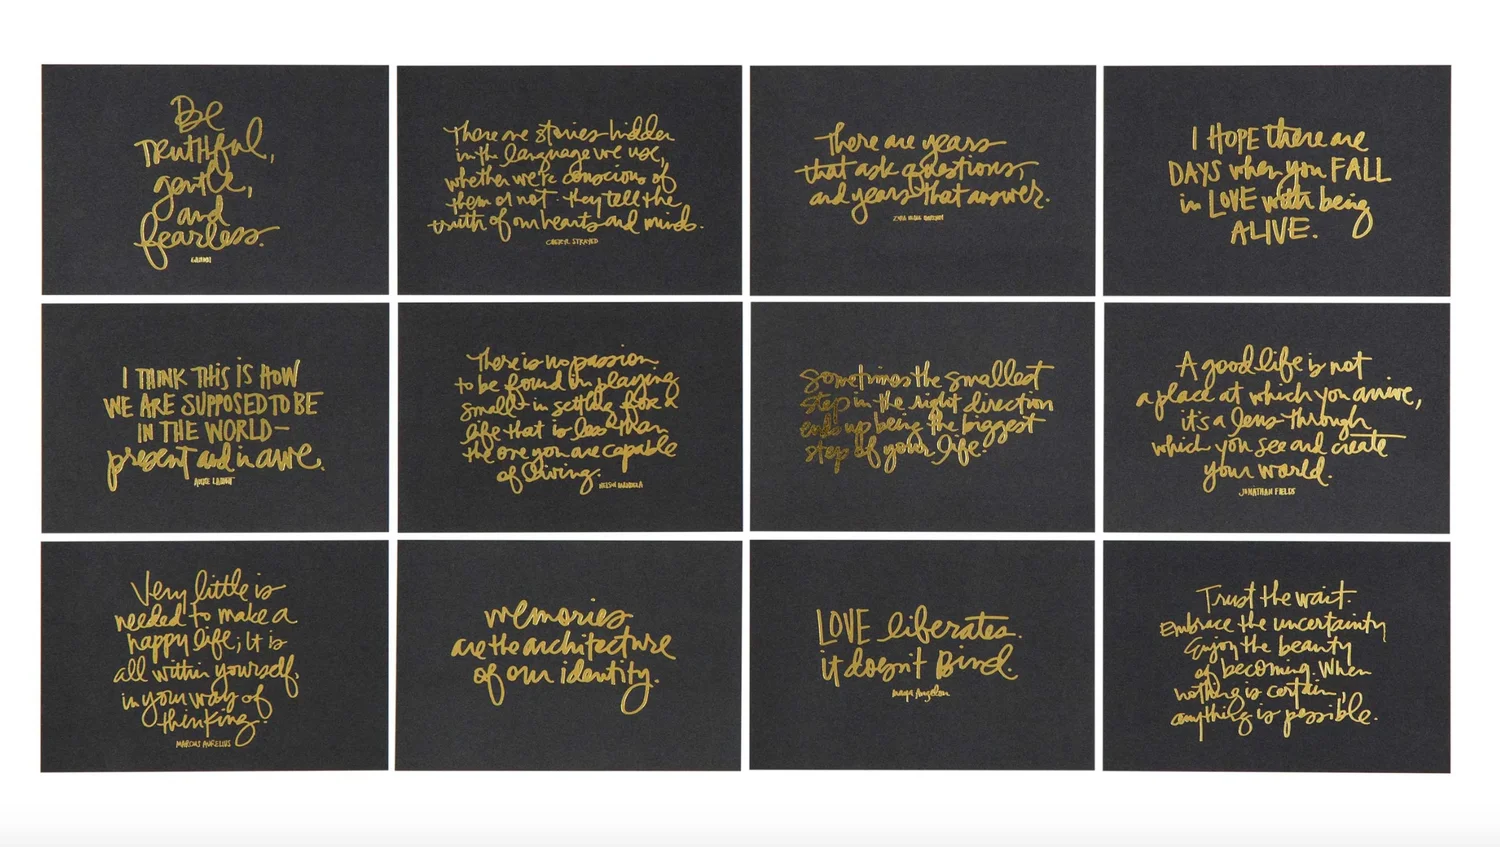 Be
TRUTHful,
gentle,
and
fearless.
GANDHI
There are stories hidden
in the language we use,
whether we're conscious of
them or not. they tell the
truth of our hearts and minds.
CHERYL STRAYED
There are years
that ask questions,
and years that answer.
ZORA NEALE HURSTON
I HOPE there are
DAYS when you FALL
in LOVE with being
ALIVE.
I THINK THIS IS HOW
WE ARE SUPPOSED TO BE
IN THE WORLD—
present and in awe.
ANNE LAMOTT
There is no passion
to be found in playing
small - in settling for a
life that is less than
the one you are capable
of living.
NELSON MANDELA
Sometimes the smallest
step in the right direction
ends up being the biggest
step of your life.
A good life is not
a place at which you arrive,
it's a lens through
which you see and create
your world.
JONATHAN FIELDS
Very little is
needed to make a
happy life; It is
all within yourself,
in your way of
thinking.
MARCUS AURELIUS
memories
are the architecture
of our identity.
LOVE liberates.
it doesn't Bind.
maya Angelou
Trust the wait
Embrace the uncertainty
Enjoy the beauty
of becoming. When
nothing is certain,
anything is possible.